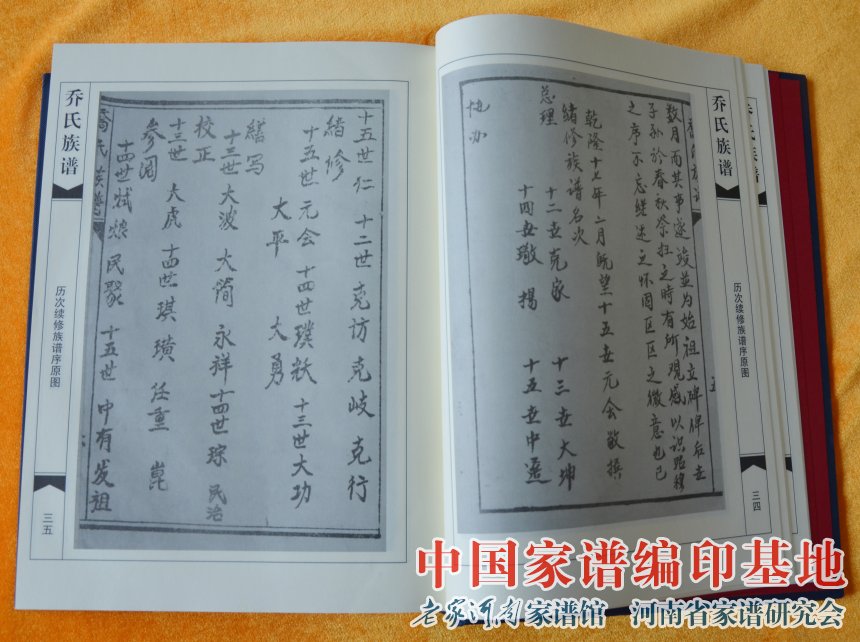 乔氏族谱
历次续修族谱序原图
三四
数月而其事遂竣並为始祖立碑俾后世
子孙於春秋祭扫之时有所观感以识昭穆
之序不忘继述之怀固区区之微意也已
乾隆十七年二月既望十五世元会敬撰
绪修族谱名次
总理 十二世克家 十三世大坤
十四世璥 揚 十五世中选
协办
乔氏族谱
历次续修族谱序原图
三五
十五世仁 十二世克访 克岐 克行
绪修
十五世元会 十四世璞 十三世大功
大平 大勇
缮写
十三世大波 大简 永祥 十四世琮 民治
校正
十三世 大虎 十四世琪 璜 任重 崑
参阅
十四世斌 民聚 十五世 中有 发祖
喬氏族谱
中国家谱编印基地
老家河南家谱馆 河南省家谱研究会